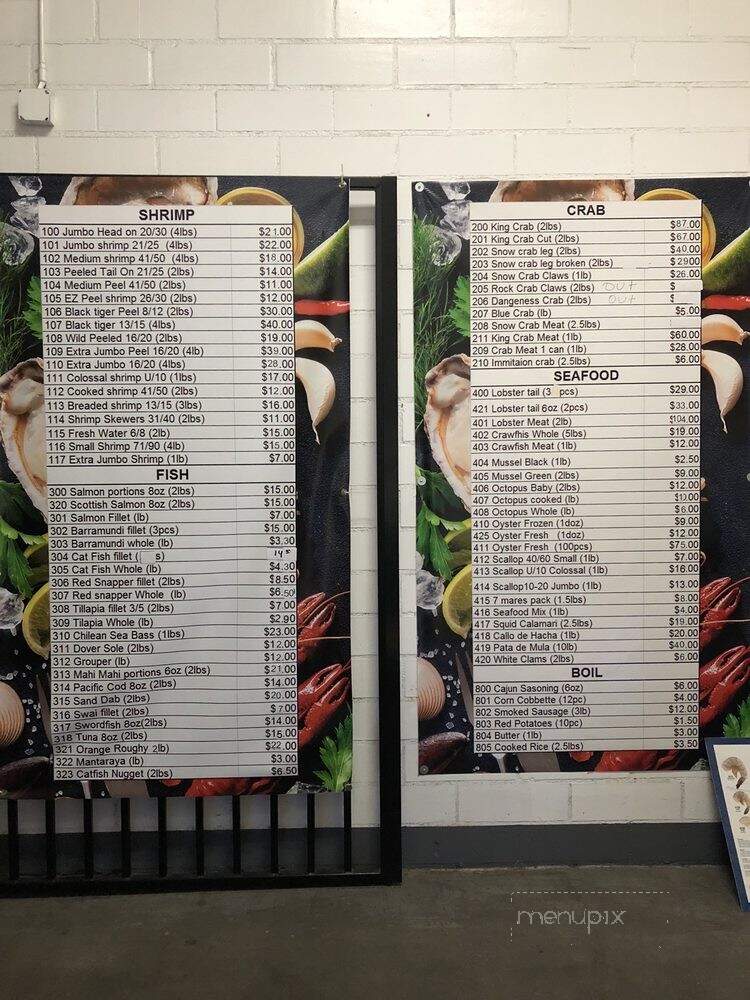 SHRIMP
100 Jumbo Head on 20/30 (4lbs) $21.00
101 Jumbo shrimp 21/25 (4lbs) $22.00
102 Medium shrimp 41/50 (4lbs) $18.00
103 Peeled Tail On 21/25 (2lbs) $14.00
104 Medium Peel 41/50 (2lbs) $11.00
105 EZ Peel shrimp 26/30 (2lbs) $12.00
106 Black tiger Peel 8/12 (2lbs) $30.00
107 Black tiger 13/15 (4lbs) $40.00
108 Wild Peeled 16/20 (2lbs) $19.00
109 Extra Jumbo Peel 16/20 (4lb) $39.00
110 Extra Jumbo 16/20 (4lbs) $28.00
111 Colossal shrimp U/10 (1lbs) $17.00
112 Cooked shrimp 41/50 (2lbs) $12.00
113 Breaded shrimp 13/15 (3lbs) $16.00
114 Shrimp Skewers 31/40 (2lbs) $11.00
115 Fresh Water 6/8 (2lb) $15.00
116 Small Shrimp 71/90 (4lb) $15.00
117 Extra Jumbo Shrimp (1lb) $7.00
FISH
300 Salmon portions 8oz (2lbs) $15.00
320 Scottish Salmon 8oz (2lbs) $15.00
301 Salmon Fillet (lb) $7.00
302 Barramundi fillet (3pcs) $15.00
303 Barramundi whole (lb) $3.30
304 Cat Fish fillet ( s)
305 Cat Fish Whole (lb) $4.30
306 Red Snapper fillet (2lbs) $8.50
307 Red snapper Whole (lb) $6.50
308 Tillapia fillet 3/5 (2lbs) $7.00
309 Tilapia Whole (lb) $2.90
310 Chilean Sea Bass (1lbs) $23.00
311 Dover Sole (2lbs) $12.00
312 Grouper (lb) $12.00
313 Mahi Mahi portions 6oz (2lbs) $21.00
314 Pacific Cod 8oz (2lbs) $14.00
315 Sand Dab (2lbs) $20.00
316 Swai fillet (2lbs) $7.00
317 Swordfish 8oz(2lbs) $14.00
318 Tuna 8oz (2lbs) $15.00
321 Orange Roughy 2lb) $22.00
322 Mantaraya (lb) $3.00
323 Catfish Nugget (2lbs) $6.50
CRAB
200 King Crab (2lbs) $87.00
201 King Crab Cut (2lbs) $67.00
202 Snow crab leg (2lbs) $40.00
203 Snow crab leg broken (2lbs) $29.00
204 Snow Crab Claws (1lb) $26.00
205 Rock Crab Claws (2lbs) OUT $
206 Dangeness Crab (2lbs) OUT $
207 Blue Crab (lb) $5.00
208 Snow Crab Meat (2.5lbs)
211 King Crab Meat (1lb) $60.00
209 Crab Meat 1 can (1lb) $28.00
210 Immitaion crab (2.5lbs) $6.00
SEAFOOD
400 Lobster tail (3 pcs) $29.00
421 Lobster tail 6oz (2pcs) $33.00
401 Lobster Meat (2lb) $104.00
402 Crawfhis Whole (5lbs) $19.00
403 Crawfish Meat (1lb) $12.00
404 Mussel Black (1lb) $2.50
405 Mussel Green (2lbs) $9.00
406 Octopus Baby (2lbs) $12.00
407 Octopus cooked (lb) $10.00
408 Octopus Whole (lb) $6.00
410 Oyster Frozen (1doz) $9.00
425 Oyster Fresh (1doz) $12.00
411 Oyster Fresh (100pcs) $75.00
412 Scallop 40/60 Small (1lb) $7.00
413 Scallop U/10 Colossal (1lb) $16.00
414 Scallop10-20 Jumbo (1lb) $13.00
415 7 mares pack (1.5lbs) $8.00
416 Seafood Mix (1lb) $4.00
417 Squid Calamari (2.5lbs) $19.00
418 Callo de Hacha (1lb) $20.00
419 Pata de Mula (10lb) $40.00
420 White Clams (2lbs) $6.00
BOIL
800 Cajun Sasoning (6oz) $6.00
801 Corn Cobbette (12pc) $4.00
802 Smoked Sausage (3lb) $12.00
803 Red Potatoes (10pc) $1.50
804 Butter (1lb) $3.00
805 Cooked Rice (2.5lbs) $3.50
menupix